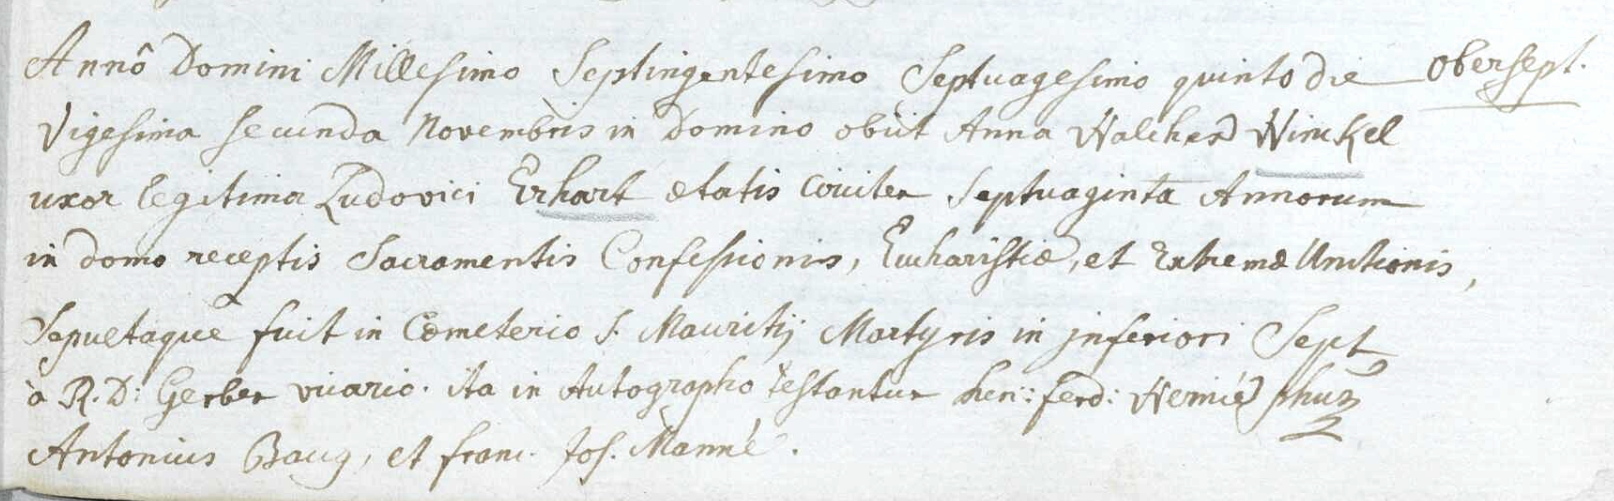 Annô Domini Millesimo Septingentesimo Septuagesimo quinto die Obersept.
Vigesima secunda Novembris in Domino obiit Anna Walcher Winckel
uxor legitima Ludovici Erhart ætatis circiter Septuaginta Annorum
in domo receptis Sacramentis Confessionis, Eucharistiæ, et Extremæ Unctionis,
Sepultaque fuit in Cœmeterio S. Mauritij Martyris in inferiori Sept
à R. D: Gerber vicario. ita in Autographo testantur hen: ferd:
Antonius Baug, et franc. Jos. Manné.